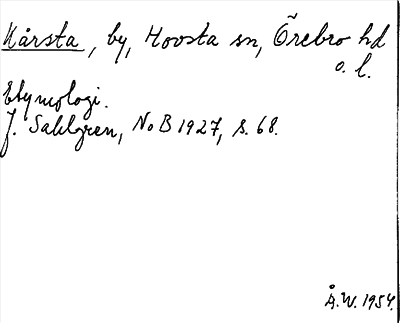 Kårsta, by, Hovsta sn, Örebro hd
o. l.
Etymologi.
J. Sahlgren, NoB 1927, s. 68.
Å.W. 1954.